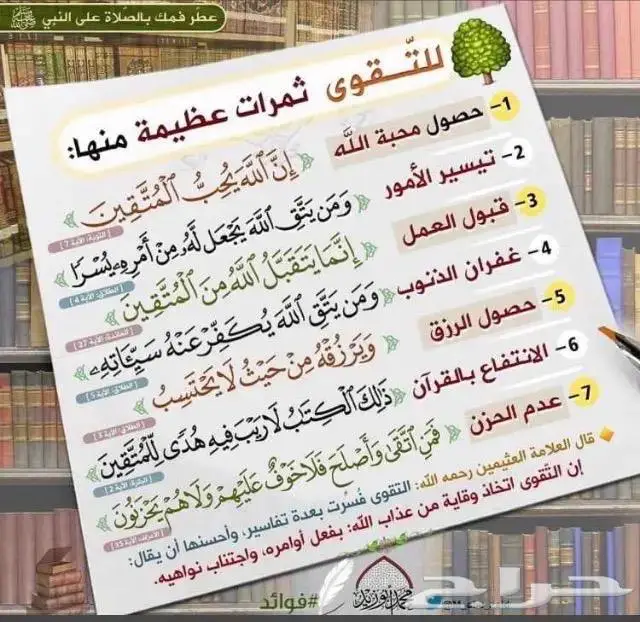 عطّر فمك بالصّلاة على النبي ﷺ
للتّـقوى ثمرات عظيمة منها:
1- حصول محبة الله
﴿ إِنَّ ٱللَّهَ يُحِبُّ ٱلۡمُتَّقِينَ ﴾
[التوبة: الآية 7]
2- تيسير الأمور
﴿ وَمَن يَتَّقِ ٱللَّهَ يَجۡعَل لَّهُۥ مِنۡ أَمۡرِهِۦ يُسۡرٗا ﴾
[الطلاق: الآية 4]
3- قبول العمل
﴿ إِنَّمَا يَتَقَبَّلُ ٱللَّهُ مِنَ ٱلۡمُتَّقِينَ ﴾
[المائدة: الآية 27]
4- غفران الذنوب
﴿ وَمَن يَتَّقِ ٱللَّهَ يُكَفِّرۡ عَنۡهُ سَيِّـَٔاتِهِۦ ﴾
[الطلاق: الآية 5]
5- حصول الرزق
﴿ وَيَرۡزُقۡهُ مِنۡ حَيۡثُ لَا يَحۡتَسِبُ ﴾
[الطلاق: الآية 3]
6- الانتفاع بالقرآن
﴿ ذَٰلِكَ ٱلۡكِتَٰبُ لَا رَيۡبَ فِيهِ هُدٗى لِّلۡمُتَّقِينَ ﴾
[البقرة: الآية 2]
7- عدم الحزن
﴿ فَمَنِ ٱتَّقَىٰ وَأَصۡلَحَ فَلَا خَوۡفٌ عَلَيۡهِمۡ وَلَا هُمۡ يَحۡزَنُونَ ﴾
[الأعراف: الآية 35]
قال العلامة العثيمين رحمه الله: التقوى فُسّرت بعدة تفاسير، وأحسنها أن يقال:
إن التّقوى اتخاذ وقاية من عذاب الله: بفعل أوامره، واجتناب نواهيه.
#فوائد
محمد أبو زيد
حراج